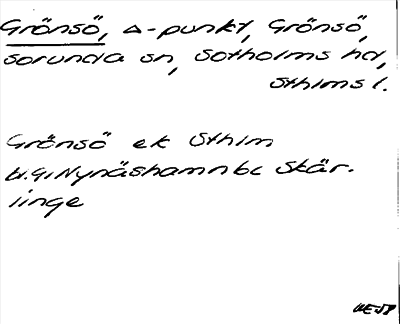 Grönsö, △-punkt, Grönsö,
Sorunda sn, Sotholms hd,
Sthlms l.
Grönsö ek Sthlm
bl. 9i Nynäshamn bc Skär.
inge